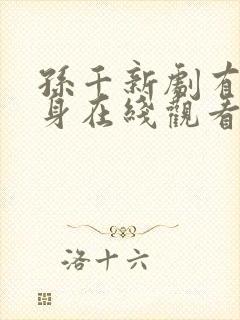 孫千新劇有
身在綫觀看
洛十六